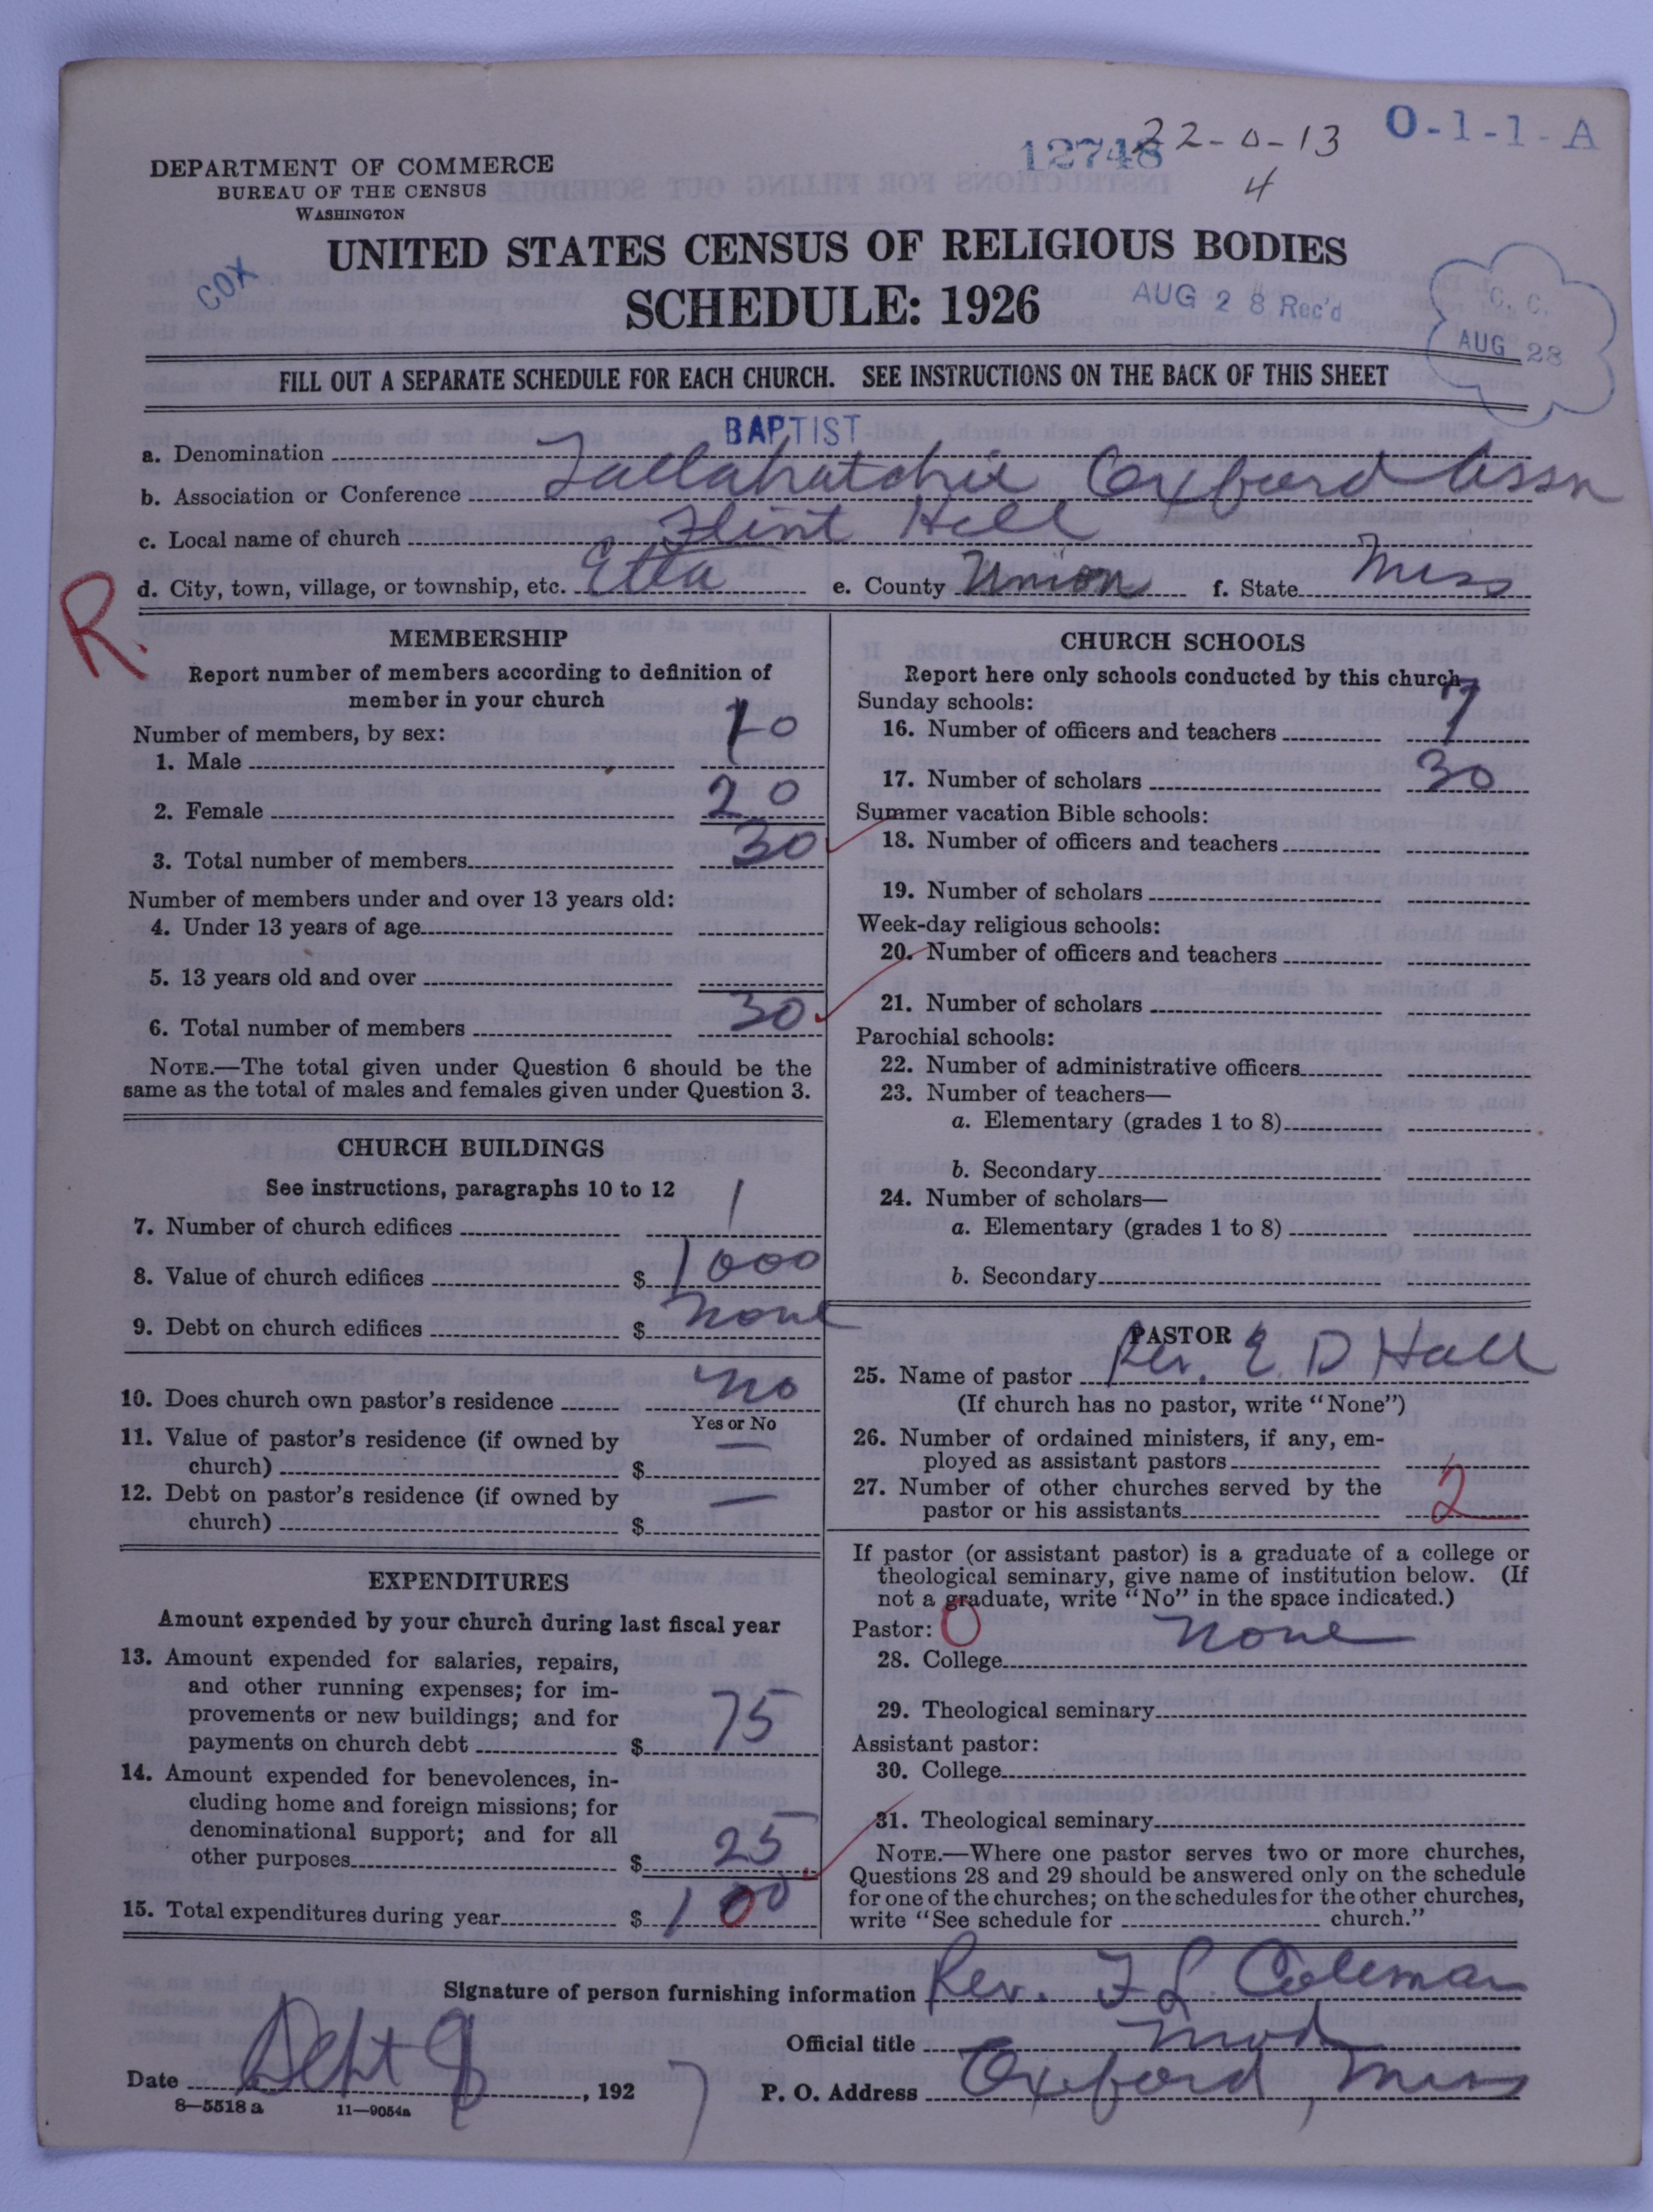 12748 22-0-13 O-1-1-A
4
DEPARTMENT OF COMMERCE
BUREAU OF THE CENSUS
WASHINGTON
COX
UNITED STATES CENSUS OF RELIGIOUS BODIES
SCHEDULE: 1926
AUG 28 Rec'd
C. C.
AUG 28
FILL OUT A SEPARATE SCHEDULE FOR EACH CHURCH. SEE INSTRUCTIONS ON THE BACK OF THIS SHEET
a. Denomination BAPTIST
b. Association or Conference Tallahatchie Oxford Assn
c. Local name of church Flint Hill
d. City, town, village, or township, etc. Etta e. County Union f. State Miss
R.
MEMBERSHIP
Report number of members according to definition of
member in your church
Number of members, by sex:
1. Male 10
2. Female 20
3. Total number of members 30
Number of members under and over 13 years old:
4. Under 13 years of age
5. 13 years old and over
6. Total number of members 30
NOTE.—The total given under Question 6 should be the
same as the total of males and females given under Question 3.
CHURCH BUILDINGS
See instructions, paragraphs 10 to 12
7. Number of church edifices 1
8. Value of church edifices $ 1000
9. Debt on church edifices $ None
10. Does church own pastor's residence No
Yes or No
11. Value of pastor's residence (if owned by
church) $ —
12. Debt on pastor's residence (if owned by
church) $ —
EXPENDITURES
Amount expended by your church during last fiscal year
13. Amount expended for salaries, repairs,
and other running expenses; for im-
provements or new buildings; and for
payments on church debt $ 75
14. Amount expended for benevolences, in-
cluding home and foreign missions; for
denominational support; and for all
other purposes $ 25
15. Total expenditures during year $ 100
CHURCH SCHOOLS
Report here only schools conducted by this church
Sunday schools:
16. Number of officers and teachers 7
17. Number of scholars 30
Summer vacation Bible schools:
18. Number of officers and teachers
19. Number of scholars
Week-day religious schools:
20. Number of officers and teachers
21. Number of scholars
Parochial schools:
22. Number of administrative officers
23. Number of teachers—
a. Elementary (grades 1 to 8)
b. Secondary
24. Number of scholars—
a. Elementary (grades 1 to 8)
b. Secondary
PASTOR
25. Name of pastor Rev. E. D Hall
(If church has no pastor, write "None")
26. Number of ordained ministers, if any, em-
ployed as assistant pastors
27. Number of other churches served by the
pastor or his assistants 2
If pastor (or assistant pastor) is a graduate of a college or
theological seminary, give name of institution below. (If
not a graduate, write "No" in the space indicated.)
Pastor: O
28. College None
29. Theological seminary
Assistant pastor:
30. College
31. Theological seminary
NOTE.—Where one pastor serves two or more churches,
Questions 28 and 29 should be answered only on the schedule
for one of the churches; on the schedules for the other churches,
write "See schedule for church."
Signature of person furnishing information Rev. F L Coleman
Official title Mod
Date Sept 8, 1927 P. O. Address Oxford, Miss
8—5518 a 11—9054a